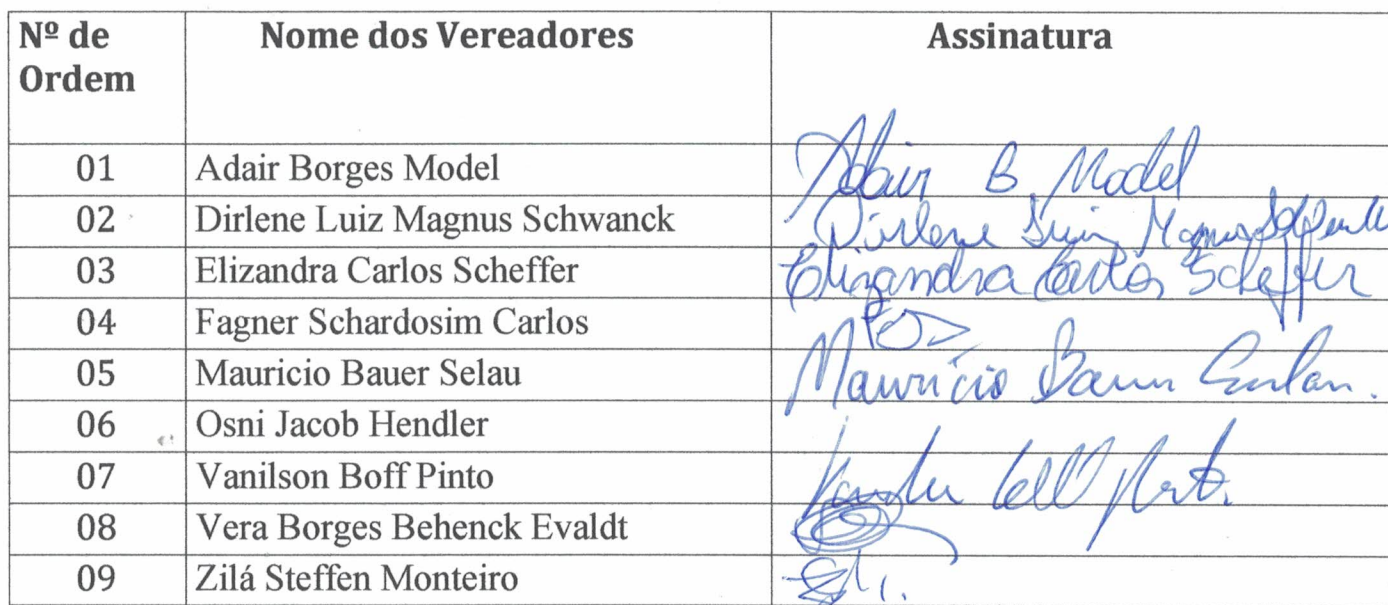 Nº de Ordem Nome dos Vereadores Assinatura
01 Adair Borges Model Adair B. Model
02 Dirlene Luiz Magnus Schwanck Dirlene Luiz Magnus
03 Elizandra Carlos Scheffer Elizandra Carlos Scheffer
04 Fagner Schardosim Carlos
05 Mauricio Bauer Selau Mauricio Bauer
06 Osni Jacob Hendler
07 Vanilson Boff Pinto
08 Vera Borges Behenck Evaldt
09 Zilá Steffen Monteiro